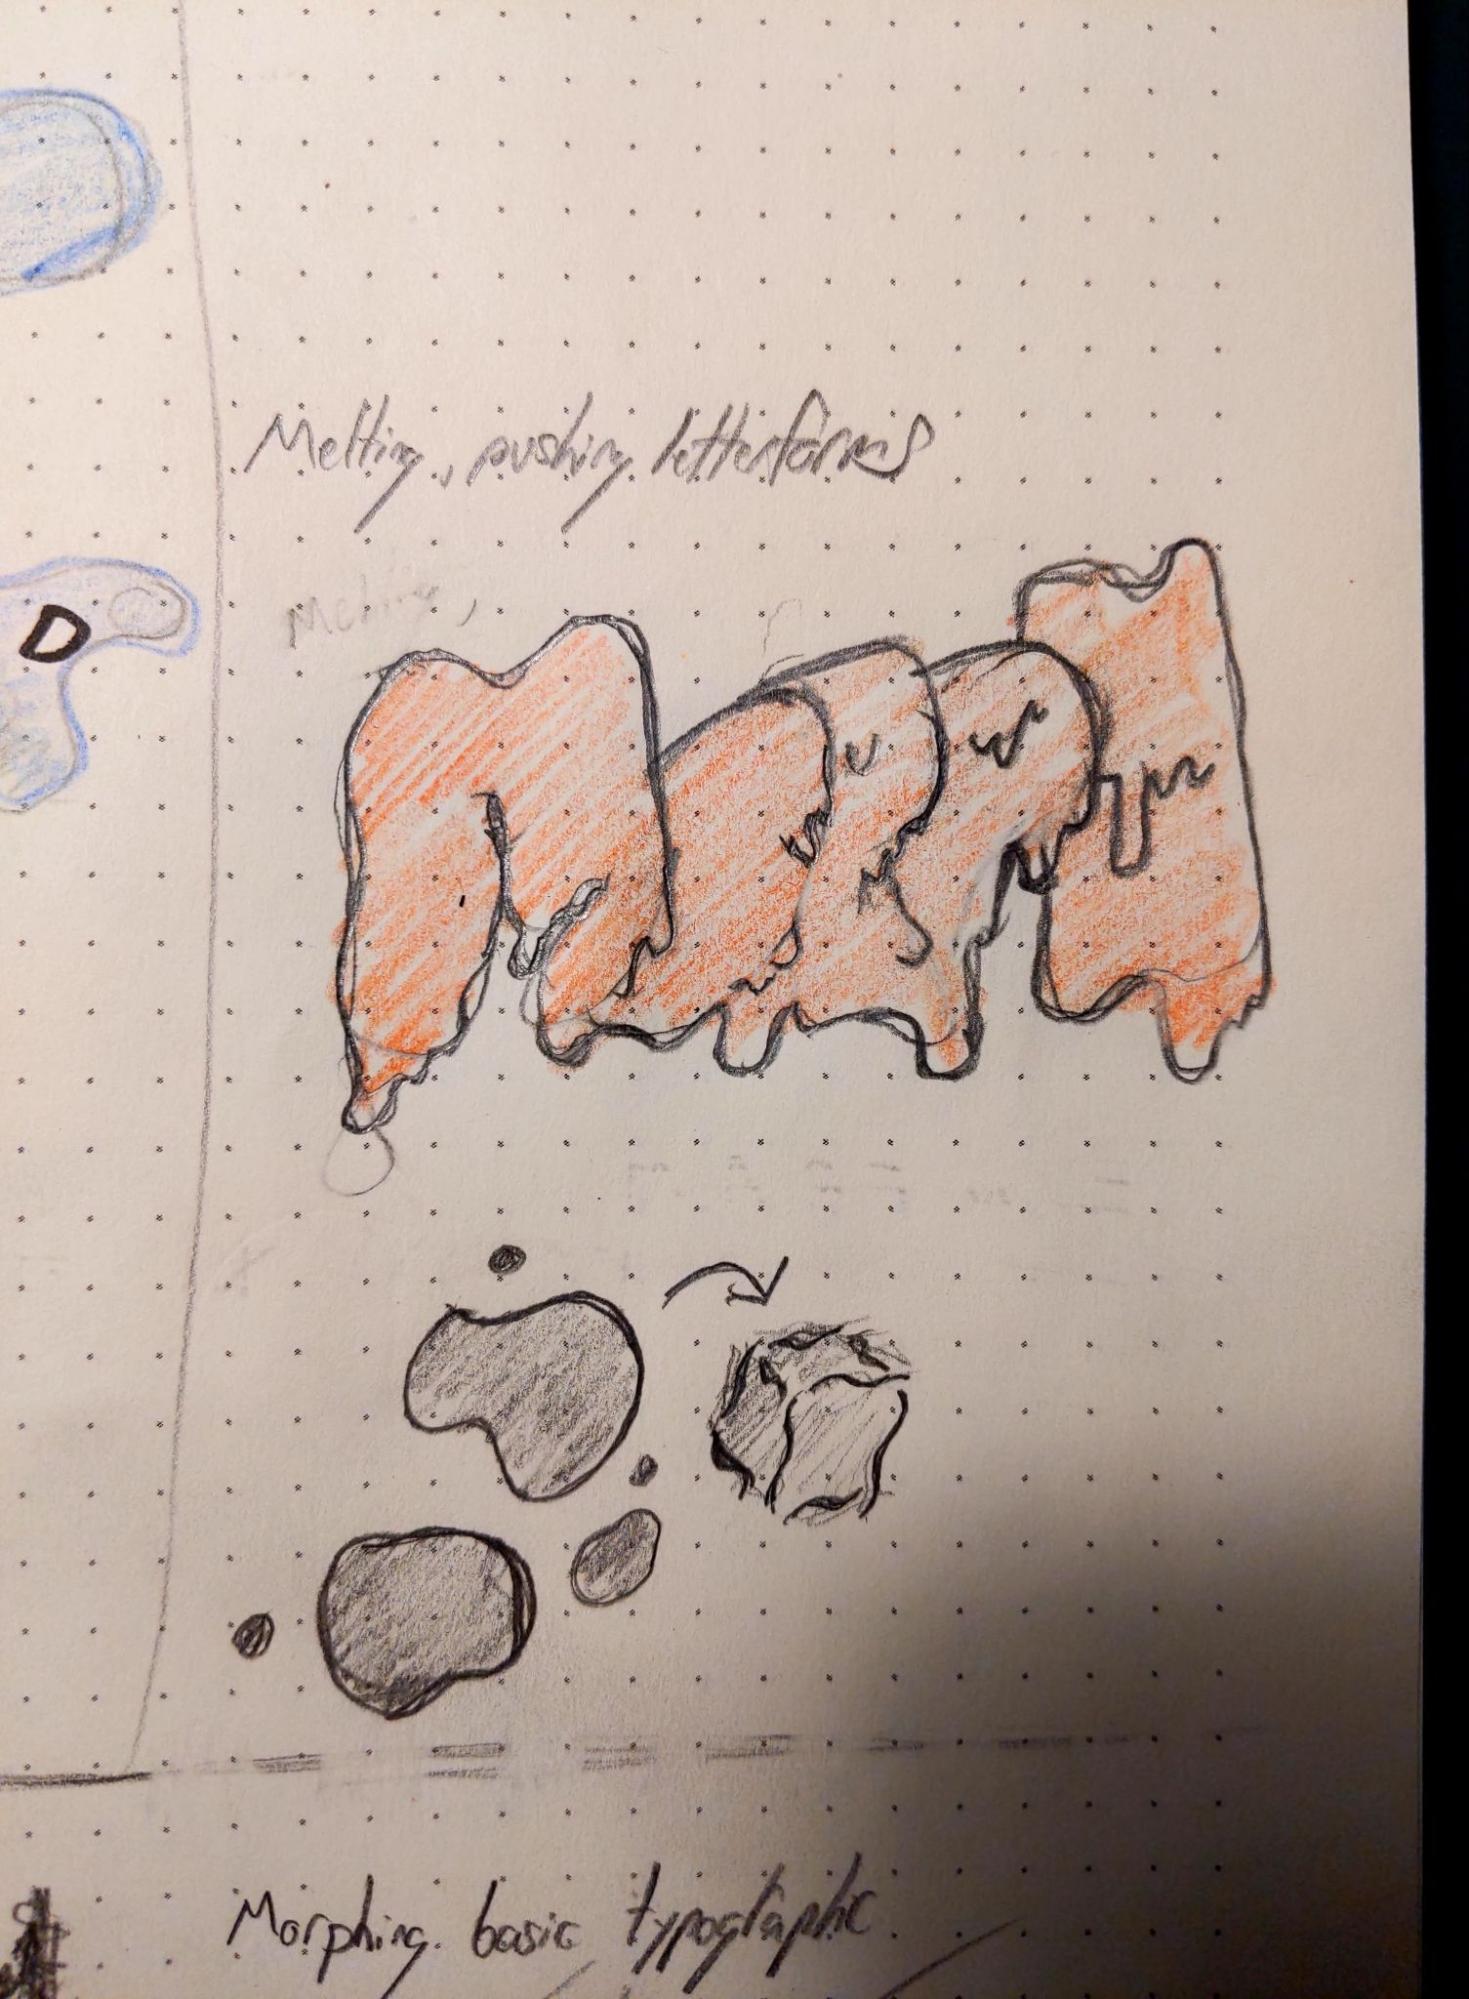 Melting, pushing letterforms
Melting,
D
Morphing basic typographic